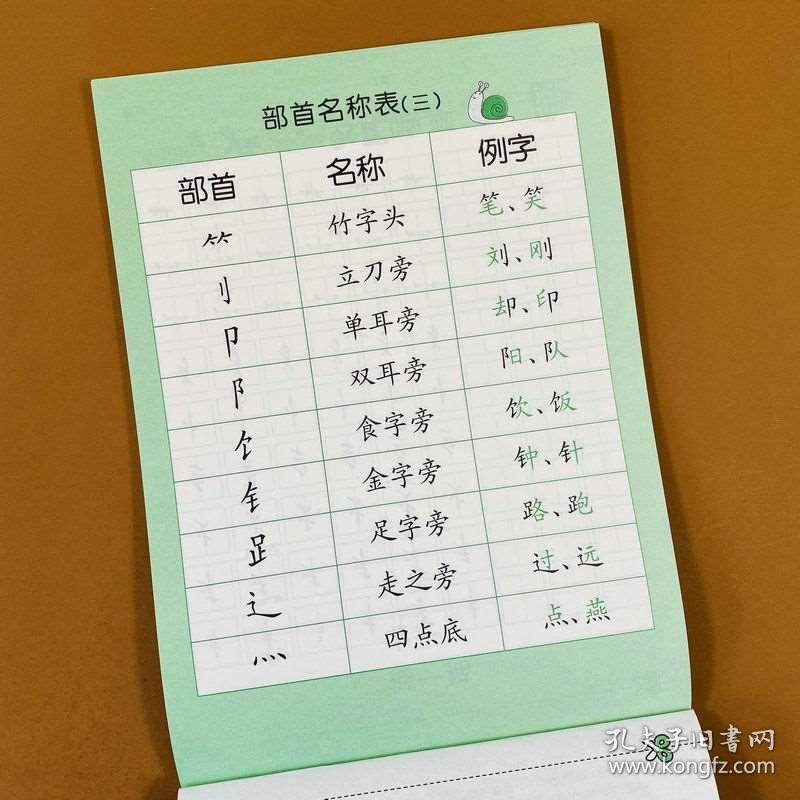 部首名称表(三)
部首 名称 例字
⺮ 竹字头 笔、笑
刂 立刀旁 刘、刚
卩 单耳旁 却、印
阝 双耳旁 阳、队
饣 食字旁 饮、饭
钅 金字旁 钟、针
𧾷 足字旁 路、跑
辶 走之旁 过、远
灬 四点底 点、燕
孔夫子旧书网
www.kongfz.com